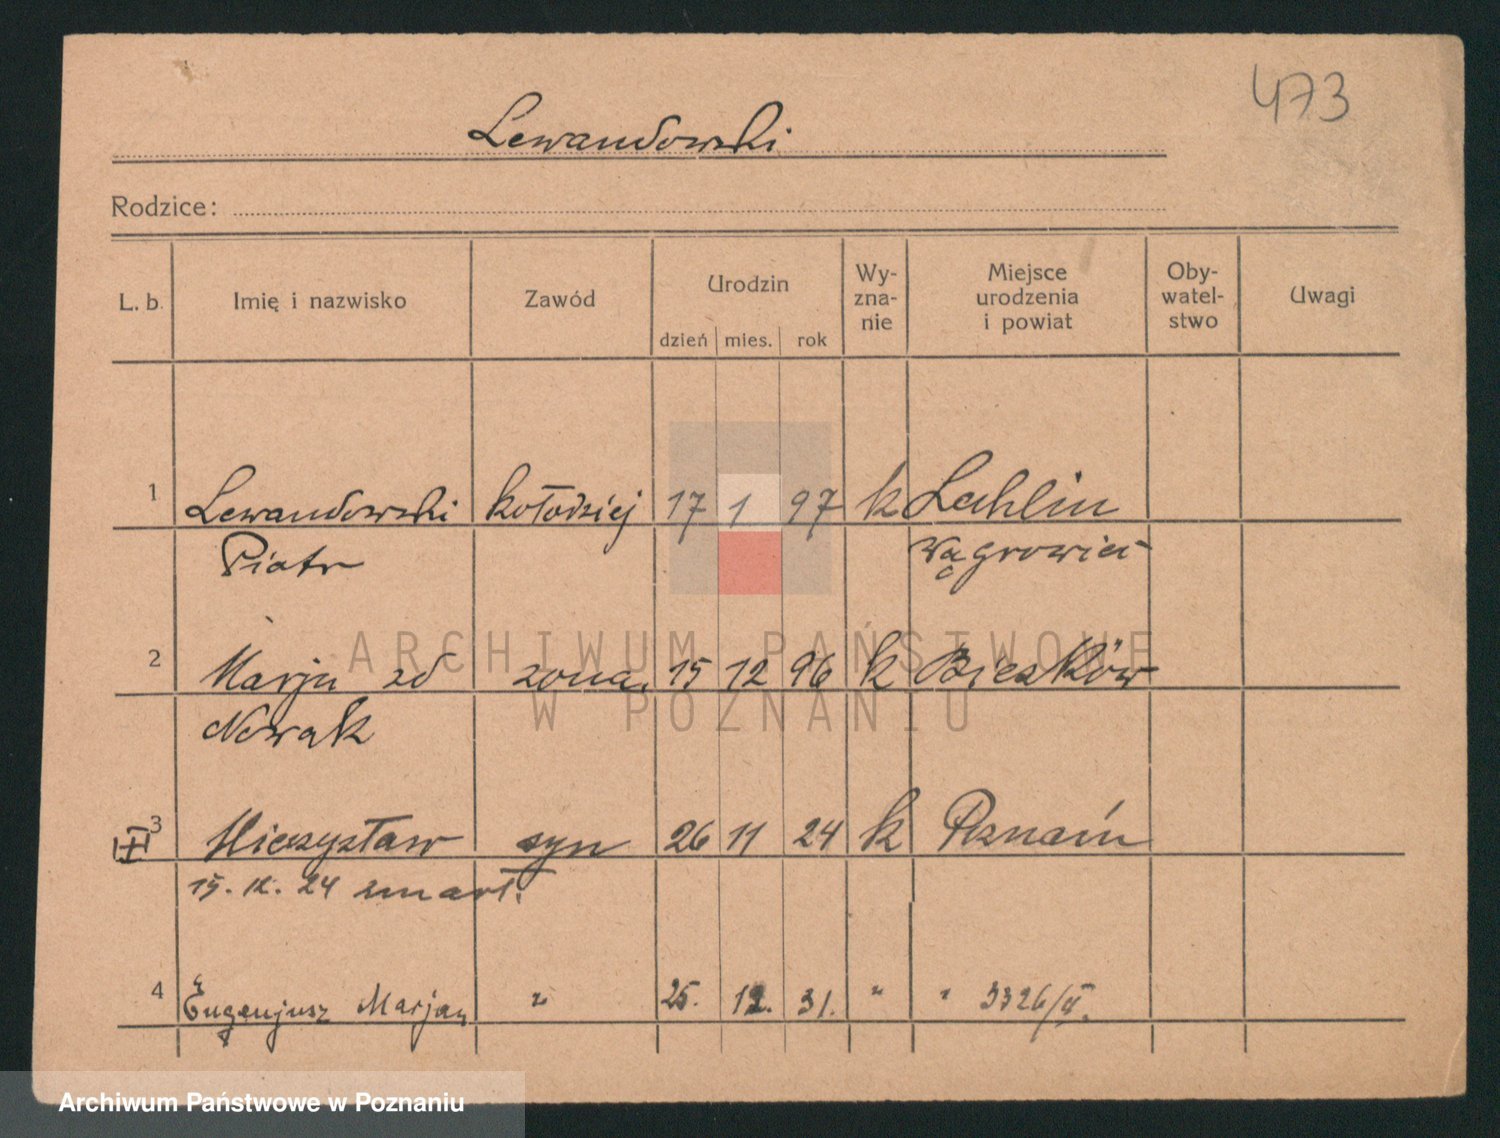 473
Lewandowski
Rodzice:
L. b. Imię i nazwisko Zawód Urodzin dzień mies. rok Wy-zna-nie Miejsce urodzenia i powiat Oby-watel-stwo Uwagi
1 Lewandowski kołodziej 17 1 97 k Lechlin
Piotr Wągrowiec
2 Marja zd żona 15 12 96 k
Nowak
3 Mieczysław syn 26 11 24 k Poznań
15. 12. 24 zmarł.
4 Eugenjusz Marjan " 25. 12. 31. " " 3326/II.
ARCHIWUM PAŃSTWOWE
W POZNANIU
Archiwum Państwowe w Poznaniu